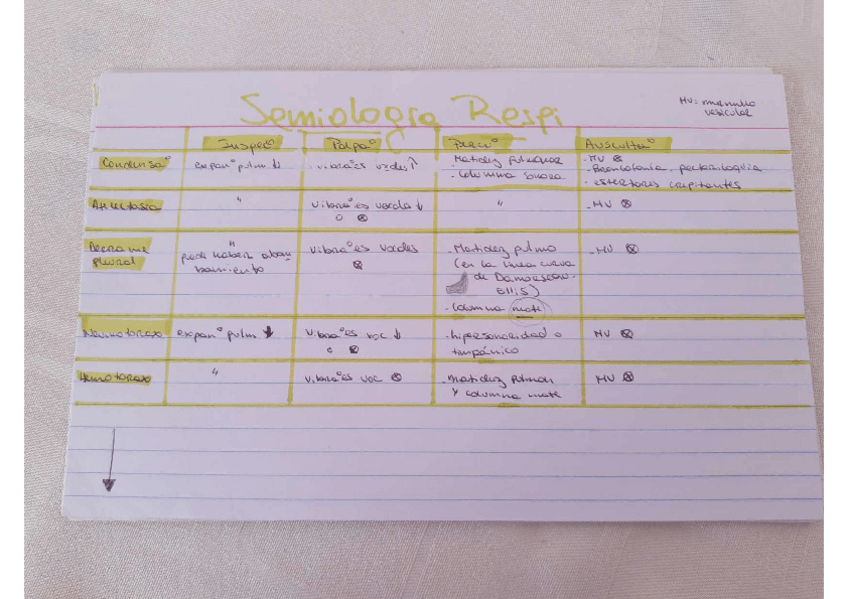 Semiología Respi
MV: murmullo
vesicular
Inspec° Palpa° Percu° Ausculta°
Condensa° expan° pulm ↓ . vibra°es vocales ↑ . Matidez pulmonar
. columna sonora
. MV ⊗
. Broncofonía, pectoriloquia
. estertores crepitantes
Atelectasia " vibra°es vocales ↓
o ⊗
" . MV ⊗
Derrame
pleural
"
puede haber abom
bamiento
vibra°es vocales
⊗
. Matidez pulmo
(en la línea curva
de Damoiseau-
Ellis)
. columna mate
. MV ⊗
Neumotorax expan° pulm ↓ vibra°es voc ↓
o ⊗
. hipersonoridad o
timpánico
MV ⊗
Hemotorax " vibra°es voc ⊗ . matidez pulmon
y columna mate
MV ⊗